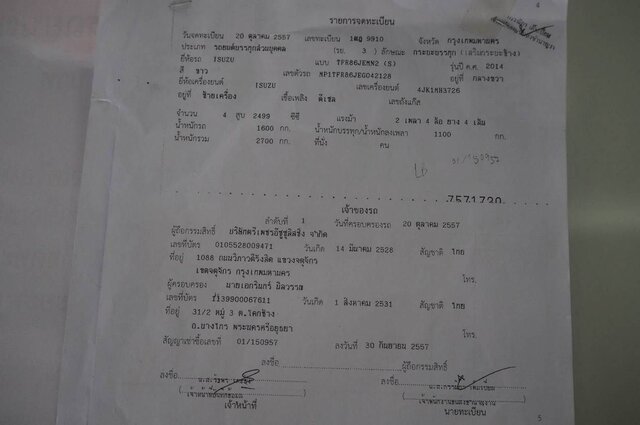 4
รายการจดทะเบียน
วันจดทะเบียน 20 ตุลาคม 2557 เลขทะเบียน 1ฒฎ 9910 จังหวัด กรุงเทพมหานคร
ประเภท รถยนต์บรรทุกส่วนบุคคล (รย. 3) ลักษณะ กระบะบรรทุก (เสริมกระบะข้าง)
ยี่ห้อรถ ISUZU แบบ TFR86JEMN2 (S) รุ่นปี ค.ศ. 2014
สี ขาว เลขตัวรถ MP1TFR86JEG042128 อยู่ที่ กลางขวา
ยี่ห้อเครื่องยนต์ ISUZU เลขเครื่องยนต์ 4JK1MH3726
อยู่ที่ ซ้ายเครื่อง เชื้อเพลิง ดีเซล เลขถังแก๊ส
จำนวน 4 สูบ 2499 ซีซี แรงม้า 2 เพลา 4 ล้อ ยาง 4 เส้น
น้ำหนักรถ 1600 กก. น้ำหนักบรรทุก/น้ำหนักลงเพลา 1100 กก.
น้ำหนักรวม 2700 กก. ที่นั่ง คน
7571730
เจ้าของรถ
ลำดับที่ 1 วันที่ครอบครองรถ 20 ตุลาคม 2557
ผู้ถือกรรมสิทธิ์ บริษัทตรีเพชรอีซูซุลิสซิ่ง จำกัด
เลขที่บัตร 0105528009471 วันเกิด 14 มีนาคม 2528 สัญชาติ ไทย
ที่อยู่ 1088 ถนนวิภาวดีรังสิต แขวงจตุจักร
เขตจตุจักร กรุงเทพมหานคร โทร.
ผู้ครอบครอง นายเอกรินทร์ นิลวรรณ
เลขที่บัตร 1139900067611 วันเกิด 1 สิงหาคม 2531 สัญชาติ ไทย
ที่อยู่ 31/2 หมู่ 3 ต.โคกช้าง
อ.บางไทร พระนครศรีอยุธยา โทร.
สัญญาเช่าซื้อเลขที่ 01/150957 ลงวันที่ 30 กันยายน 2557
ลงชื่อ ผู้ถือกรรมสิทธิ์
ลงชื่อ ลงชื่อ
เจ้าหน้าที่ นายทะเบียน
5